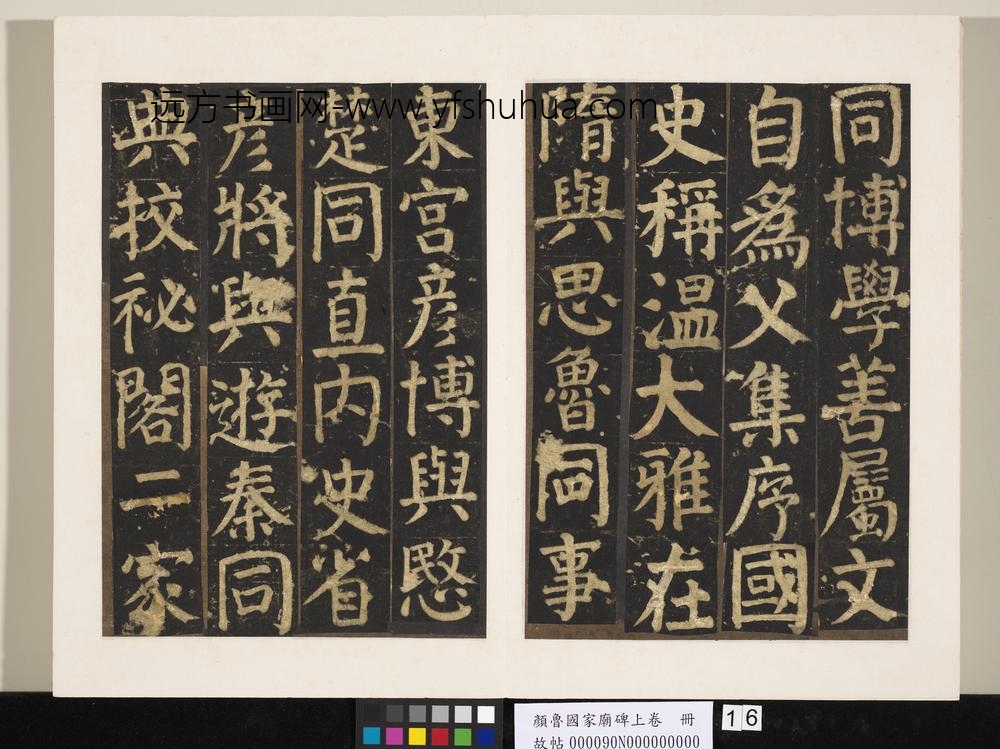 同博學善屬文
自為父集序國
史稱溫大雅在
隋與思魯同事
東宮彥博與愍
楚同直內史省
彥將與遊秦同
典挍祕閣二家
远方书画网-www.yfshuhua.com
顏魯國家廟碑上卷 冊
故帖 000090N000000000
16